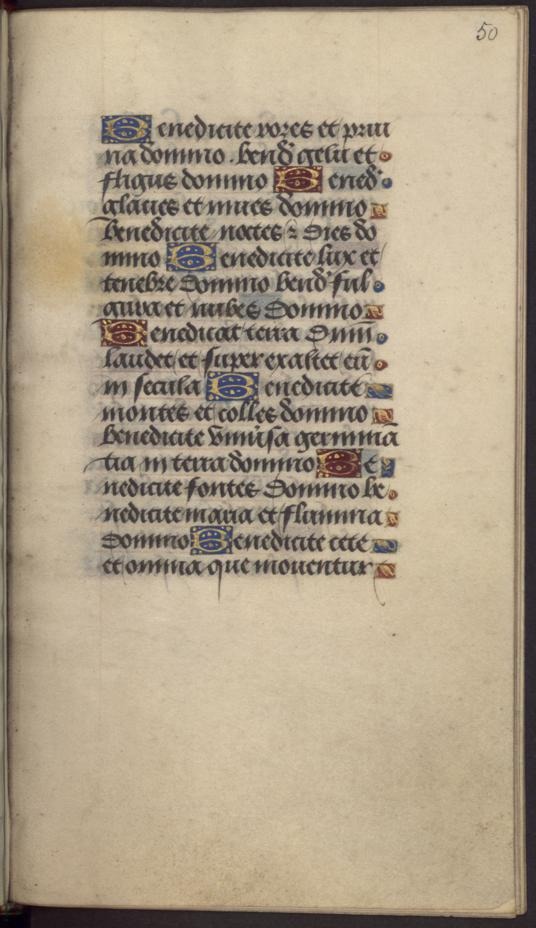 50
Benedicite rores et prui
na domino . bend gelu et
frigus domino Bened
glacies et nives domino
benedicite noctes 2 dies do
mino Benedicite lux et
tenebre domino bend ful
gura et nubes domino
Benedicat terra dnm
laudet et superexaltet eu
in secula Benedicite
montes et colles domino
benedicite universa germina
tia in terra domino Be
nedicite fontes domino be
nedicite maria et flumina
domino Benedicite cete
et omnia que moventur